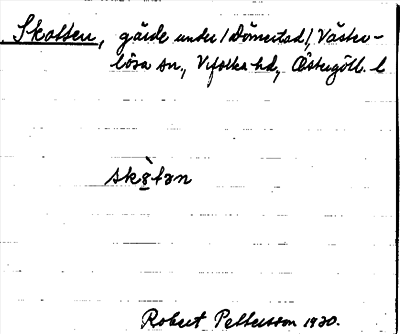 Skatten, gärde under/Dömestad/, Väster-
lösa sn., Vifolka hd, Östergötl. l
skàtən
Robert Pettersson 1930.